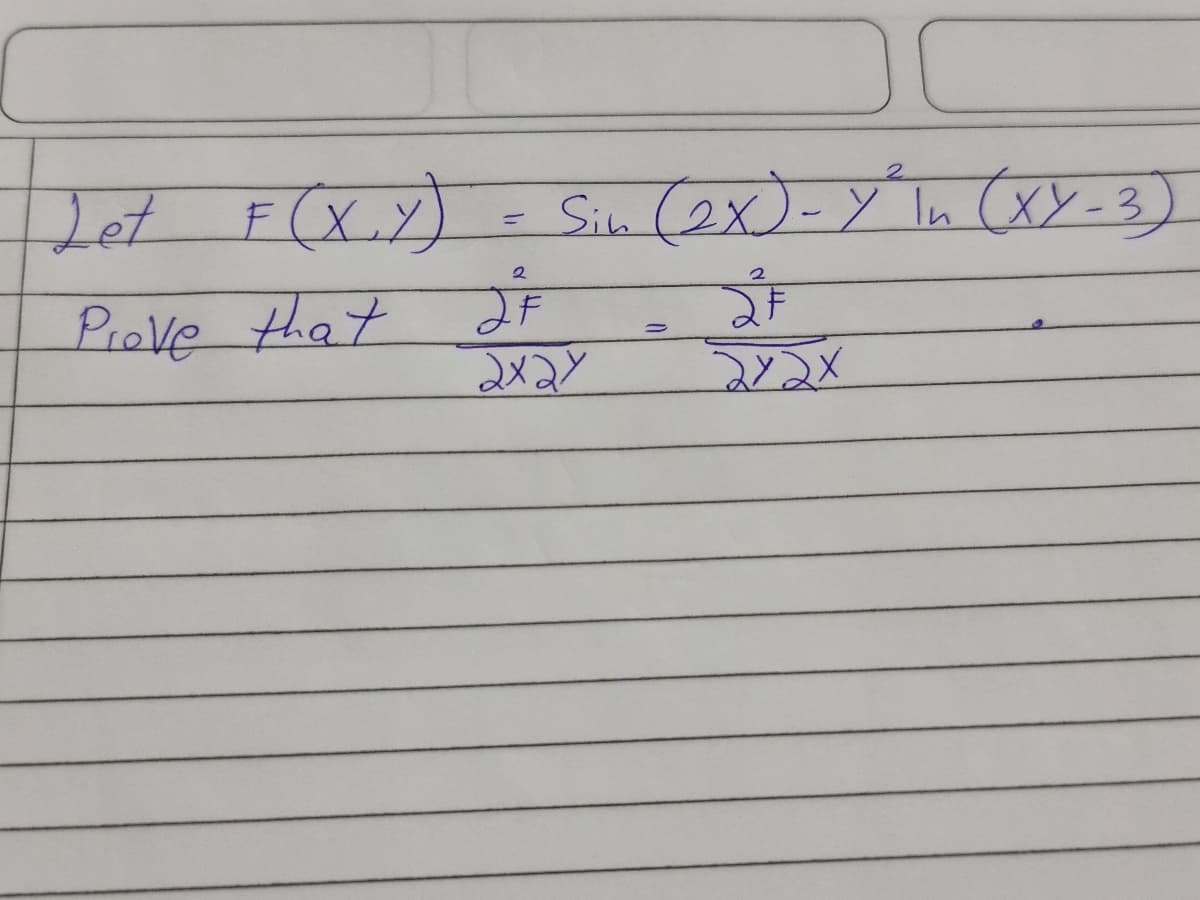 Let F(x,y) = Sin (2x) - y² ln (xy-3)
Prove that ∂²F/∂x∂y = ∂²F/∂y∂x .